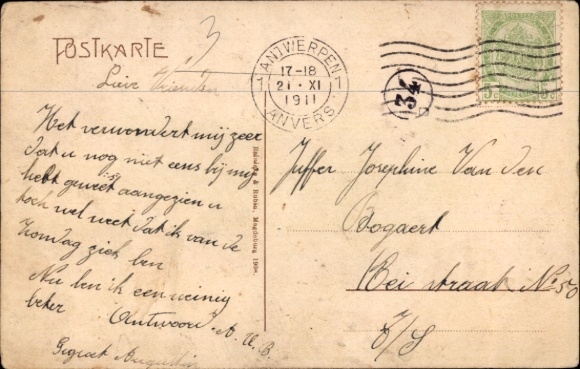 POSTKARTE
3
Lieve Vrienden
Het verwondert mij zeer
dat u nog niet eens bij mij
hebt geweest aangezien u
toch wel weet dat ik van de
Zondag ziek ben
Nu ben ik een weinig
beter Antwoord A. U. B.
Gegroet Augustin
Reinicke & Rubin, Magdeburg 1908.
1 ANTWERPEN 1
17-18
21·XI
1911
ANVERS
34
5c 5c
Juffer Josephine Van den
Bogaert
Bei straat No 50
E/S